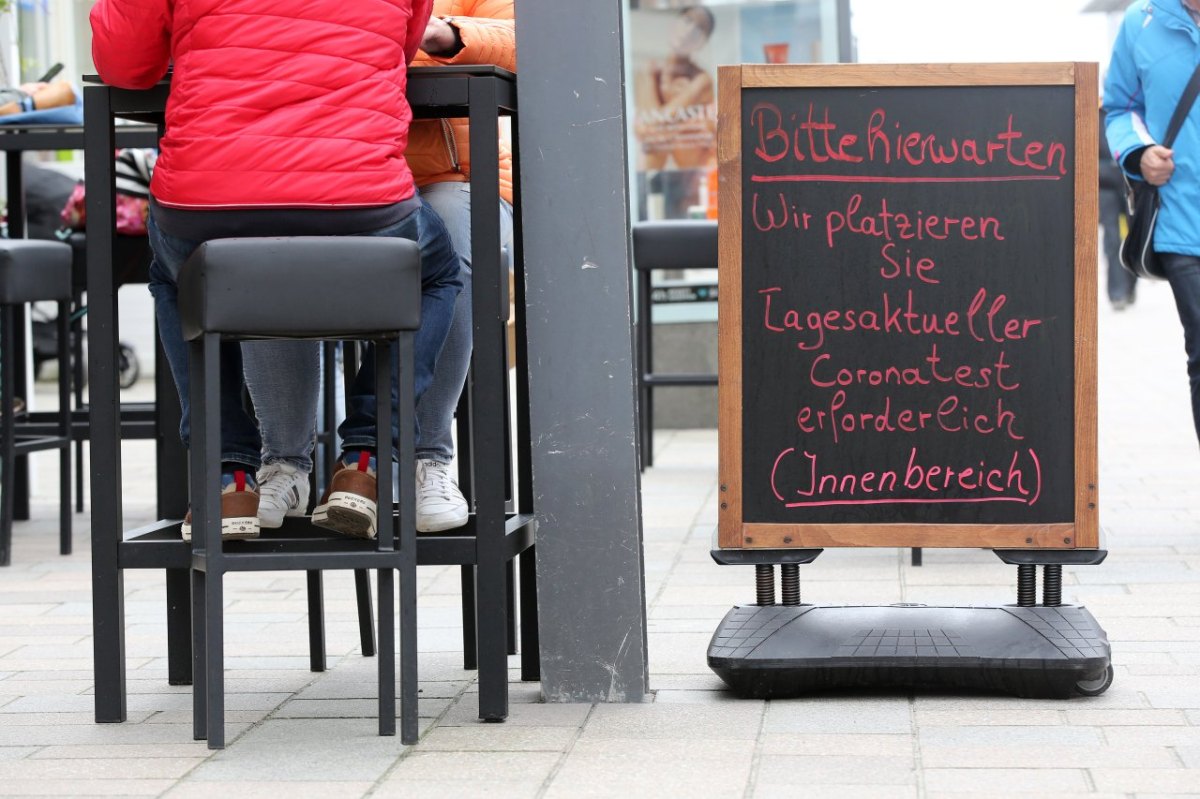 Bitte hier warten
Wir platzieren
Sie
Tagesaktueller
Coronatest
erforderlich
(Innenbereich)
LANCASTER